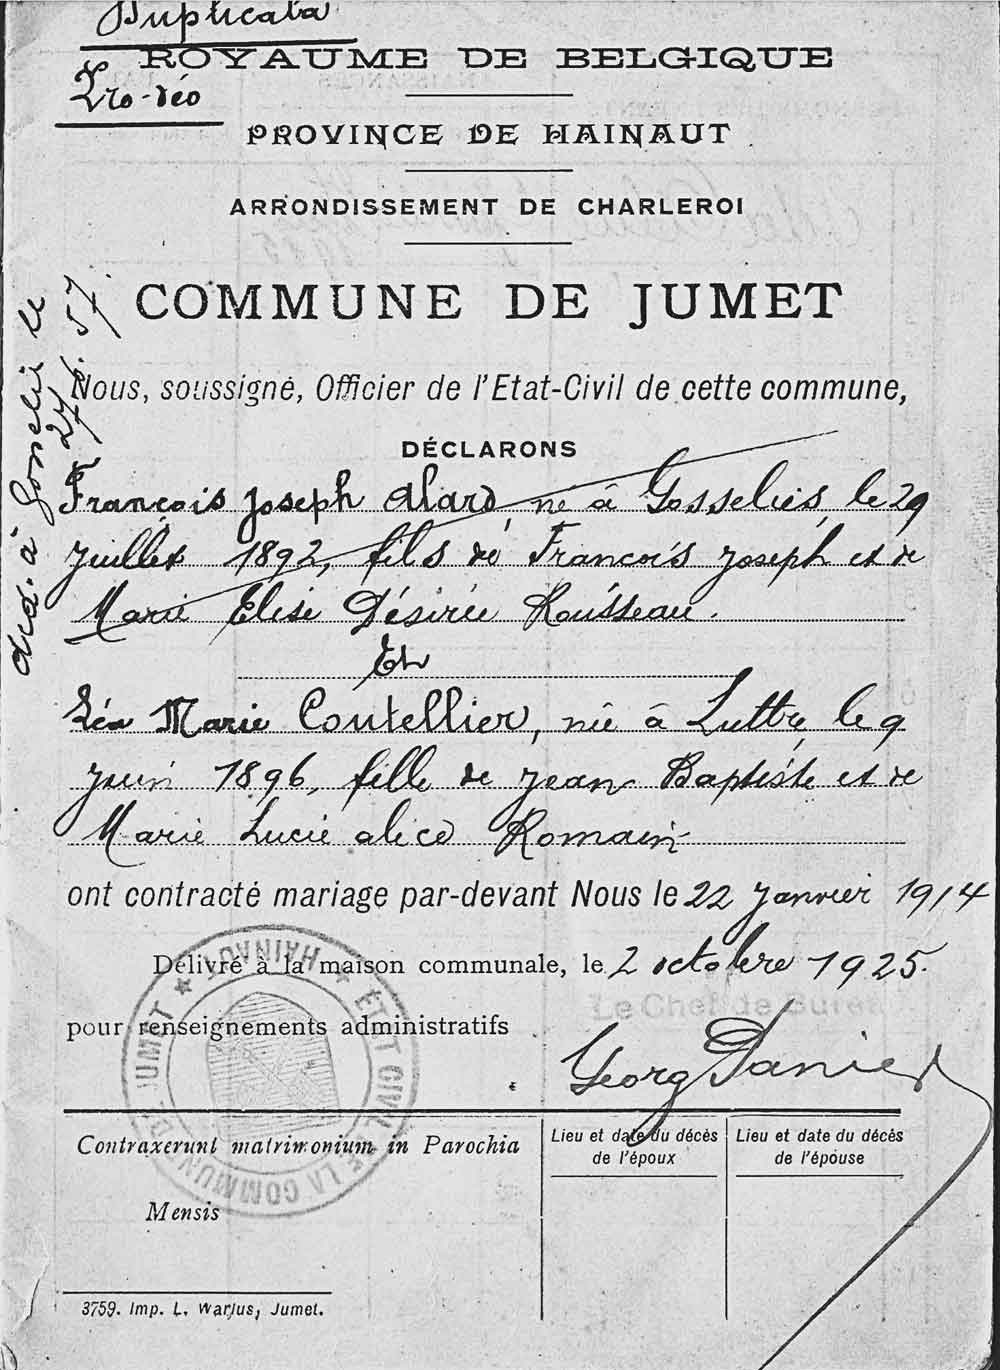 Duplicata
Pro-Déo
ROYAUME DE BELGIQUE
PROVINCE DE HAINAUT
ARRONDISSEMENT DE CHARLEROI
COMMUNE DE JUMET
Nous, soussigné, Officier de l'Etat-Civil de cette commune,
DÉCLARONS
décd. à Gosselies le
27.6.57.
François Joseph Alard, né à Gosselies le 29
juillet 1892, fils de François Joseph et de
Marie Elise Désirée Rousseau.
Et
Léa Marie Coutellier, née à Luttre le 9
juin 1896, fille de Jean Baptiste et de
Marie Lucie Alice Romain
ont contracté mariage par-devant Nous le 22 janvier 1914
Délivré à la maison communale, le 2 octobre 1925.
pour renseignements administratifs
Le Chef de Bureau
Georg Danie
ÉTAT CIVIL DE LA COMMUNE DE JUMET ★ HAINAUT ★
Contraxerunt matrimonium in Parochia
Mensis
Lieu et date du décès
de l'époux
Lieu et date du décès
de l'épouse
3759. Imp. L. Warjus, Jumet.